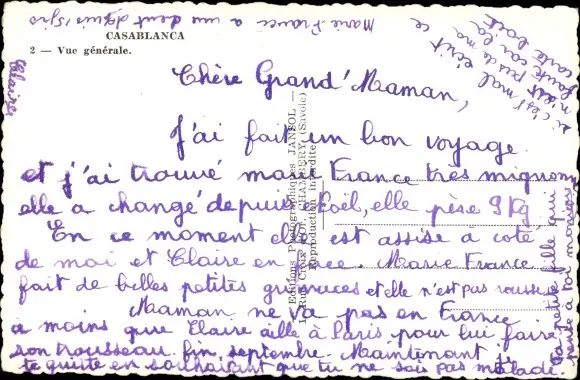 CASABLANCA
2 — Vue générale.
Marie-France a une dent depuis 5 jrs
si c'est mal écrit ce
n'est pas de ma
faute car la
carte boit
Claire
Chère Grand'Maman,
J'ai fait un bon voyage
et j'ai trouvé marie France très mignonne
elle a changé depuis Noël, elle pèse 9 Kg
En ce moment elle est assise a coté
de moi et Claire en face. Marie France
fait de belles petites grimaces et elle n'est pas rousse
Maman ne va pas en France
a moins que Claire aille à Paris pour lui faire
son trousseau fin septembre. Maintenant je
te quitte en souhaitant que tu ne sois pas malade.
petite fille qui
pense à toi
Editions Photographiques JANSOL —
CHAMBERY (Savoie)
Reproduction interdite